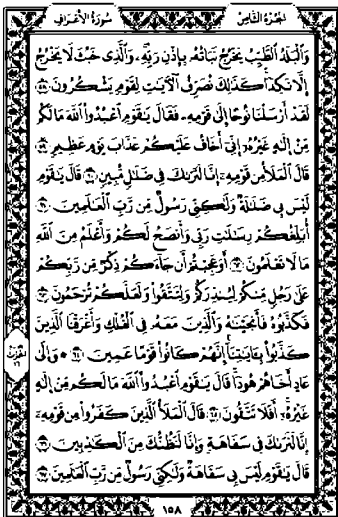 الجزء الثامن
سورة الأعراف
وَٱلْبَلَدُ ٱلطَّيِّبُ يَخْرُجُ نَبَاتُهُۥ بِإِذْنِ رَبِّهِۦ وَٱلَّذِى خَبُثَ لَا يَخْرُجُ
إِلَّا نَكِدًا كَذَٰلِكَ نُصَرِّفُ ٱلْءَايَٰتِ لِقَوْمٍ يَشْكُرُونَ ٥٨
لَقَدْ أَرْسَلْنَا نُوحًا إِلَىٰ قَوْمِهِۦ فَقَالَ يَٰقَوْمِ ٱعْبُدُوا۟ ٱللَّهَ مَا لَكُم
مِّنْ إِلَٰهٍ غَيْرُهُۥٓ إِنِّىٓ أَخَافُ عَلَيْكُمْ عَذَابَ يَوْمٍ عَظِيمٍ ٥٩
قَالَ ٱلْمَلَأُ مِن قَوْمِهِۦٓ إِنَّا لَنَرَىٰكَ فِى ضَلَٰلٍ مُّبِينٍ ٦٠ قَالَ يَٰقَوْمِ
لَيْسَ بِى ضَلَٰلَةٌ وَلَٰكِنِّى رَسُولٌ مِّن رَّبِّ ٱلْعَٰلَمِينَ ٦١
أُبَلِّغُكُمْ رِسَٰلَٰتِ رَبِّى وَأَنصَحُ لَكُمْ وَأَعْلَمُ مِنَ ٱللَّهِ
مَا لَا تَعْلَمُونَ ٦٢ أَوَعَجِبْتُمْ أَن جَآءَكُمْ ذِكْرٌ مِّن رَّبِّكُمْ
عَلَىٰ رَجُلٍ مِّنكُمْ لِيُنذِرَكُمْ وَلِتَتَّقُوا۟ وَلَعَلَّكُمْ تُرْحَمُونَ ٦٣
فَكَذَّبُوهُ فَأَنجَيْنَٰهُ وَٱلَّذِينَ مَعَهُۥ فِى ٱلْفُلْكِ وَأَغْرَقْنَا ٱلَّذِينَ
كَذَّبُوا۟ بِـَٔايَٰتِنَآ إِنَّهُمْ كَانُوا۟ قَوْمًا عَمِينَ ٦٤ ۞ وَإِلَىٰ
عَادٍ أَخَاهُمْ هُودًا قَالَ يَٰقَوْمِ ٱعْبُدُوا۟ ٱللَّهَ مَا لَكُم مِّنْ إِلَٰهٍ
غَيْرُهُۥٓ أَفَلَا تَتَّقُونَ ٦٥ قَالَ ٱلْمَلَأُ ٱلَّذِينَ كَفَرُوا۟ مِن قَوْمِهِۦٓ
إِنَّا لَنَرَىٰكَ فِى سَفَاهَةٍ وَإِنَّا لَنَظُنُّكَ مِنَ ٱلْكَٰذِبِينَ ٦٦
قَالَ يَٰقَوْمِ لَيْسَ بِى سَفَاهَةٌ وَلَٰكِنِّى رَسُولٌ مِّن رَّبِّ ٱلْعَٰلَمِينَ ٦٧
١٥٨